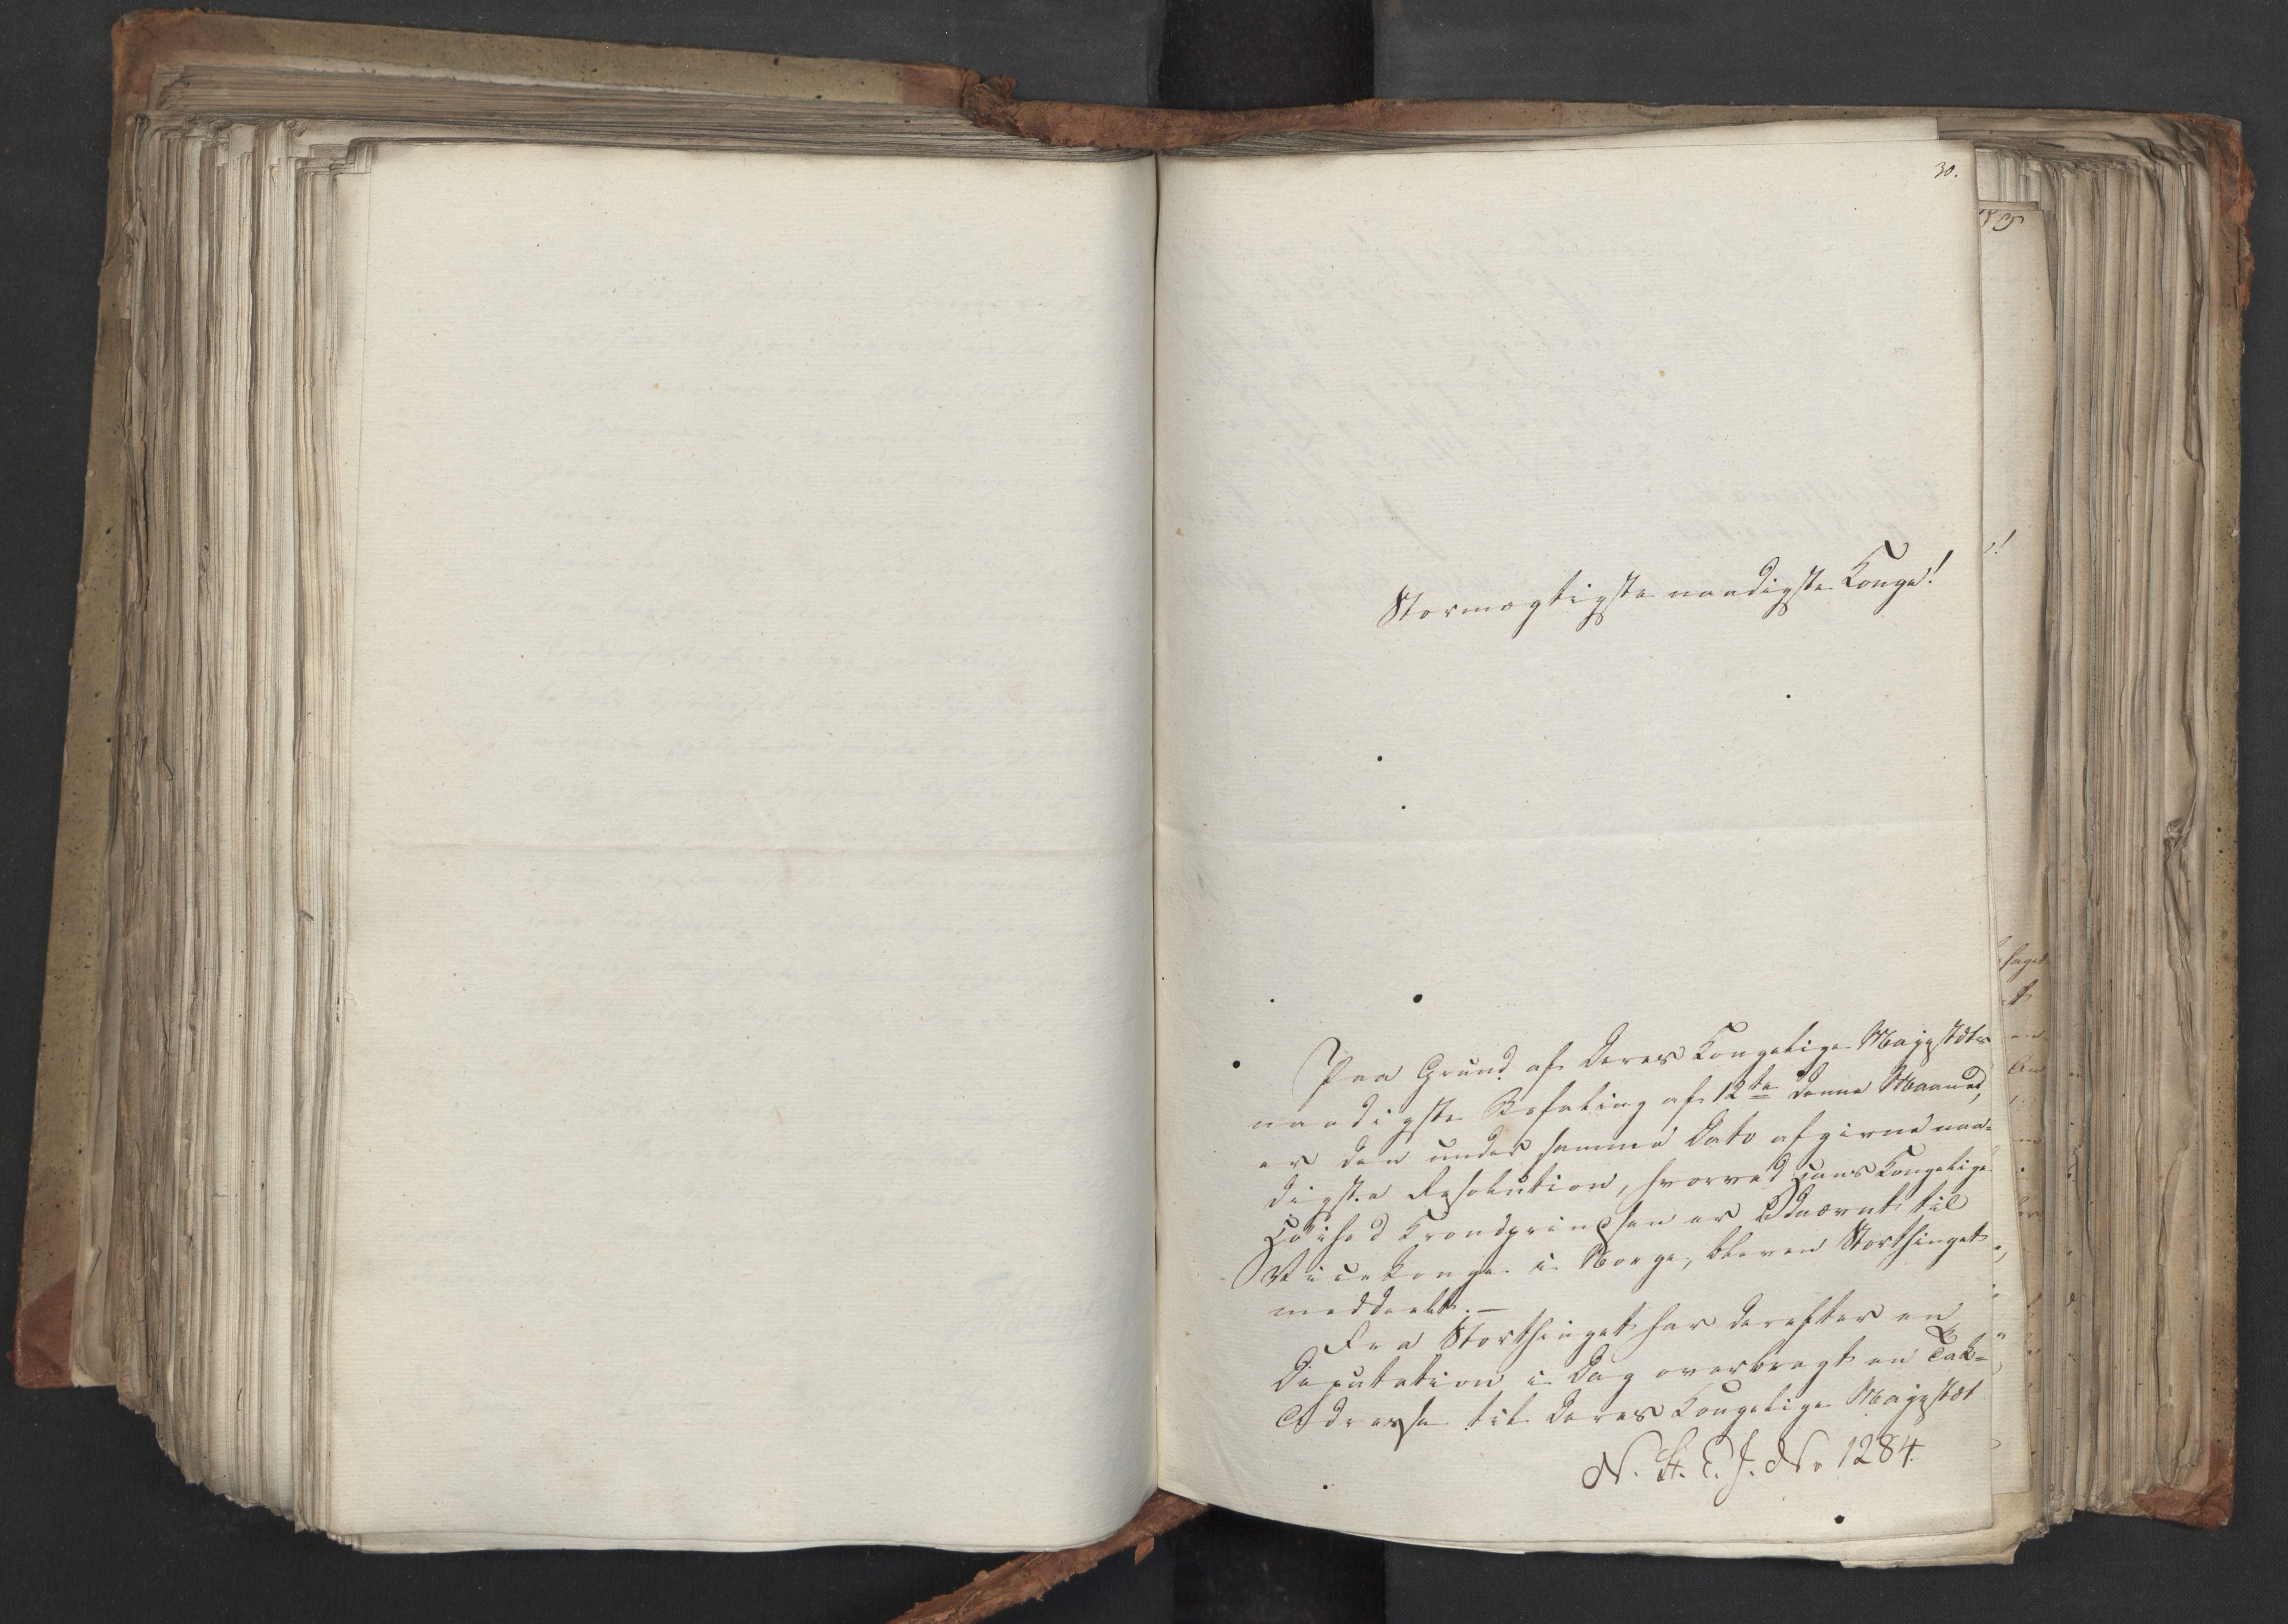 30.
Stormægtigste naadigste Konge!
Paa Grund af Deres Kongelige Majestæts
naadigste Befaling af 12te denne Maaned,
er den under samme Dato afgivne naa-
digste Resolution, hvorved Hans Kongelige
Høihed Krondprindsen er Udnævnt til
Vicekonge i Norge, bleven Storthinget
meddeelt. —
Fra Storthinget har derefter en
Deputation i Dag overbragt en Tak-
Adresse til Deres Kongelige Majestæt
N. St. E. J. No 1284.